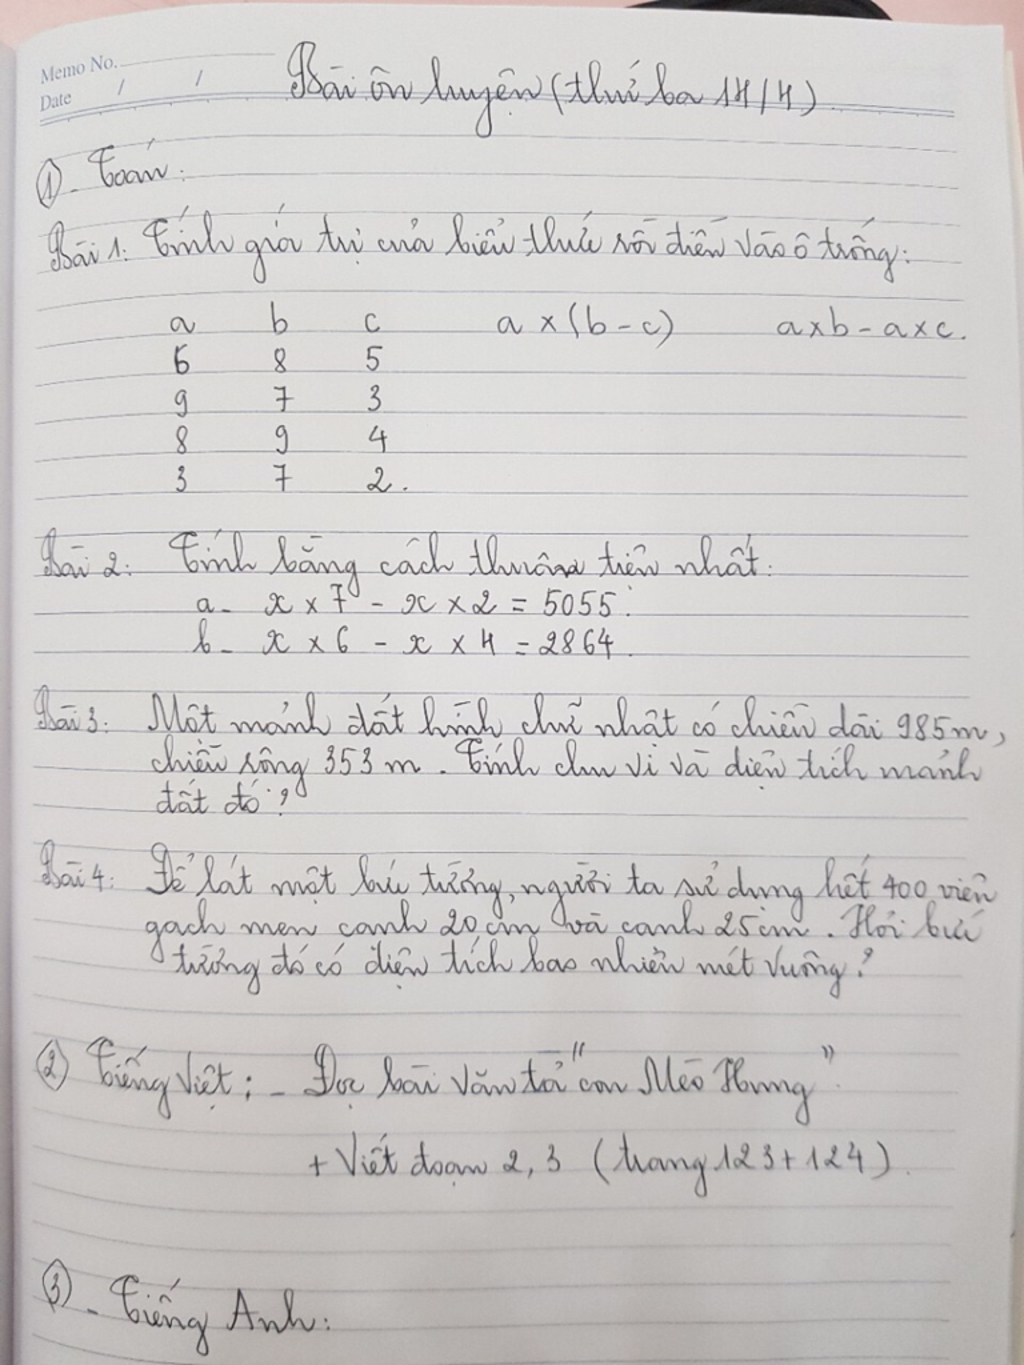 Memo No.
Date / /
Bài ôn luyện (thứ ba 14/4)
① - Toán:
Bài 1: Tính giá trị của biểu thức rồi điền vào ô trống:
a b c a x (b - c) a x b - a x c.
6 8 5
9 7 3
8 9 4
3 7 2.
Bài 2: Tính bằng cách thuận tiện nhất:
a - x x 7 - x x 2 = 5055.
b - x x 6 - x x 4 = 2864.
Bài 3: Một mảnh đất hình chữ nhật có chiều dài 985m,
chiều rộng 353m. Tính chu vi và diện tích mảnh
đất đó?
Bài 4: Để lát một bức tường, người ta sử dụng hết 400 viên
gạch men cạnh 20cm và cạnh 25cm. Hỏi bức
tường đó có diện tích bao nhiêu mét vuông?
② Tiếng Việt: - Đọc bài văn tả "con Mèo Hung"
+ Viết đoạn 2, 3 (trang 123 + 124).
③ - Tiếng Anh: